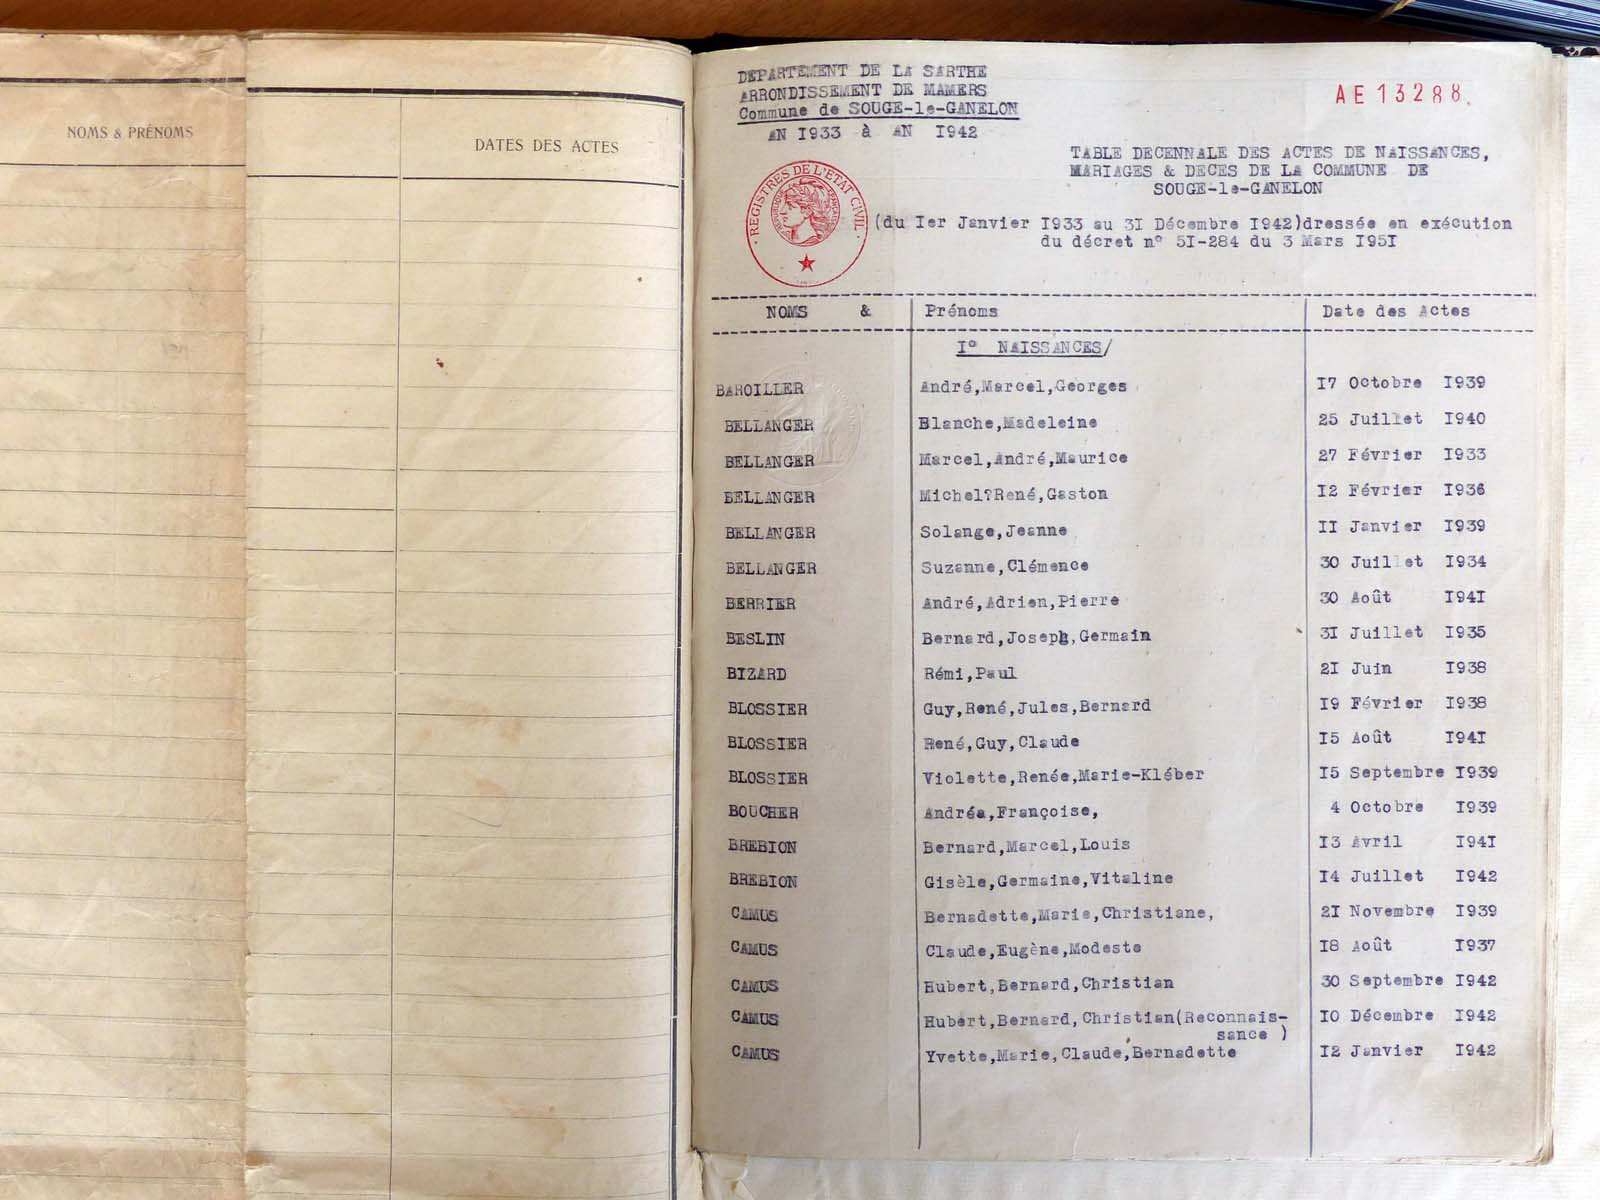 NOMS & PRÉNOMS
DATES DES ACTES
DEPARTEMENT DE LA SARTHE
ARRONDISSEMENT DE MAMERS
Commune de SOUGE-le-GANELON
AN I933 à AN I942
AE13288.
REGISTRES DE L'ETAT CIVIL
TABLE DECENNALE DES ACTES DE NAISSANCES,
MARIAGES & DECES DE LA COMMUNE DE
SOUGE-le-GANELON
(du Ier Janvier I933 au 3I Décembre I942)dressée en exécution
du décret n° 5I-284 du 3 Mars I95I
NOMS & Prénoms Date des Actes
I° NAISSANCES/
BAROILLER André,Marcel,Georges I7 Octobre I939
BELLANGER Blanche,Madeleine 25 Juillet I940
BELLANGER Marcel,André,Maurice 27 Février I933
BELLANGER Michel?René,Gaston I2 Février I936
BELLANGER Solange,Jeanne II Janvier I939
BELLANGER Suzanne,Clémence 30 Juillet I934
BERRIER André,Adrien,Pierre 30 Août I94I
BESLIN Bernard,Joseph,Germain 3I Juillet I935
BIZARD Rémi,Paul 2I Juin I938
BLOSSIER Guy,René,Jules,Bernard I9 Février I938
BLOSSIER René,Guy,Claude I5 Août I94I
BLOSSIER Violette,Renée,Marie-Kléber I5 Septembre I939
BOUCHER Andréa,Françoise, 4 Octobre I939
BREBION Bernard,Marcel,Louis I3 Avril I94I
BREBION Gisèle,Germaine,Vitaline I4 Juillet I942
CAMUS Bernadette,Marie,Christiane, 2I Novembre I939
CAMUS Claude,Eugène,Modeste I8 Août I937
CAMUS Hubert,Bernard,Christian 30 Septembre I942
CAMUS Hubert,Bernard,Christian(Reconnais- I0 Décembre I942
sance )
CAMUS Yvette,Marie,Claude,Bernadette I2 Janvier I942